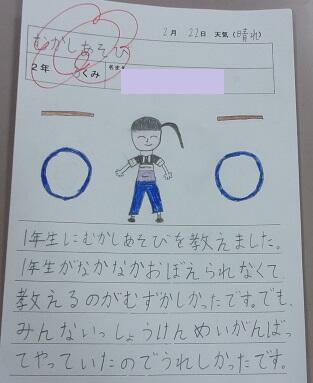 2月 22日 天気(晴れ)
むかしあそび
2年 くみ 名まえ
1年生にむかしあそびを教えました。
1年生がなかなかおぼえられなくて
教えるのがむずかしかったです。でも、
みんないっしょうけんめいがんばっ
てやっていたのでうれしかったです。